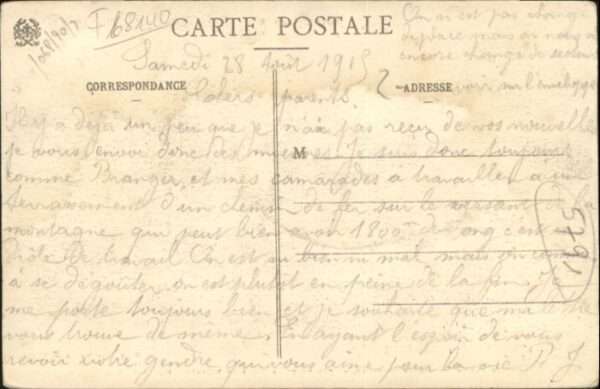 F 68140
CARTE POSTALE
On est pas changé
de place mais on
encore changé de secteur
voir sur l'enveloppe
Samedi 28 Août 1915
CORRESPONDANCE
ADRESSE
Chers parents
Il y a déjà un peu que je n'ai pas reçu de vos nouvelles
je vous envoi donc des miennes. Je suis donc toujours
comme Branger, et mes camarades à travailler a une
terrassement d'un chemin de fer sur le versant de la
montagne qui peut bien avoir 1800 de long c'est un
drôle de travail On est ni bien ni mal mais on commence
à se dégouter, on est plutot en peine de la fin. Je
me porte toujours bien et je souhaite que ma lettre
vous trouve de même. En ayant l'espoir de vous
revoir votre gendre, qui vous aime pour la vie P. J.
M